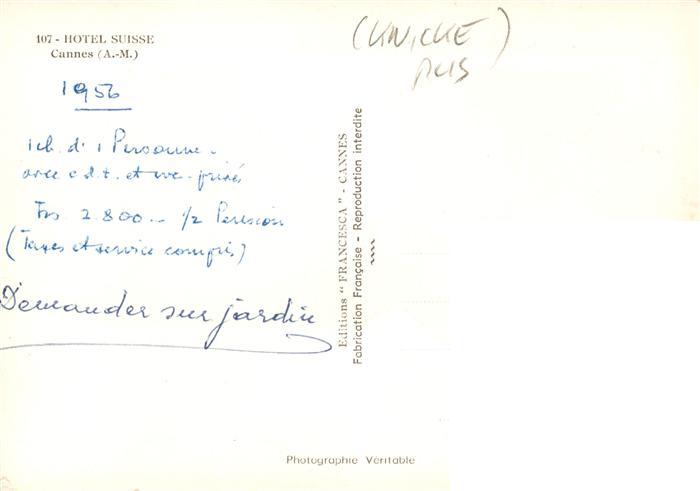 107 - HOTEL SUISSE
Cannes (A.-M.)
1956
1 ch. d' 1 Personne -
avec c.d.t. et w.c. privés
Frs 2.800.- 1/2 Pension
(Taxes et service compris)
Demander sur jardin
(KNICKE)
Editions " FRANCESCA " - CANNES
Fabrication Française - Reproduction interdite
Photographie Véritable